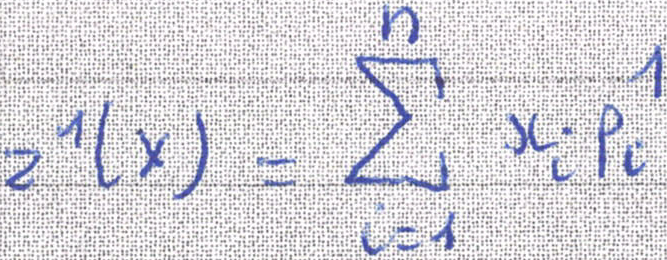 z¹(x) = ∑_{i=1}^{n} x_i · p_i¹